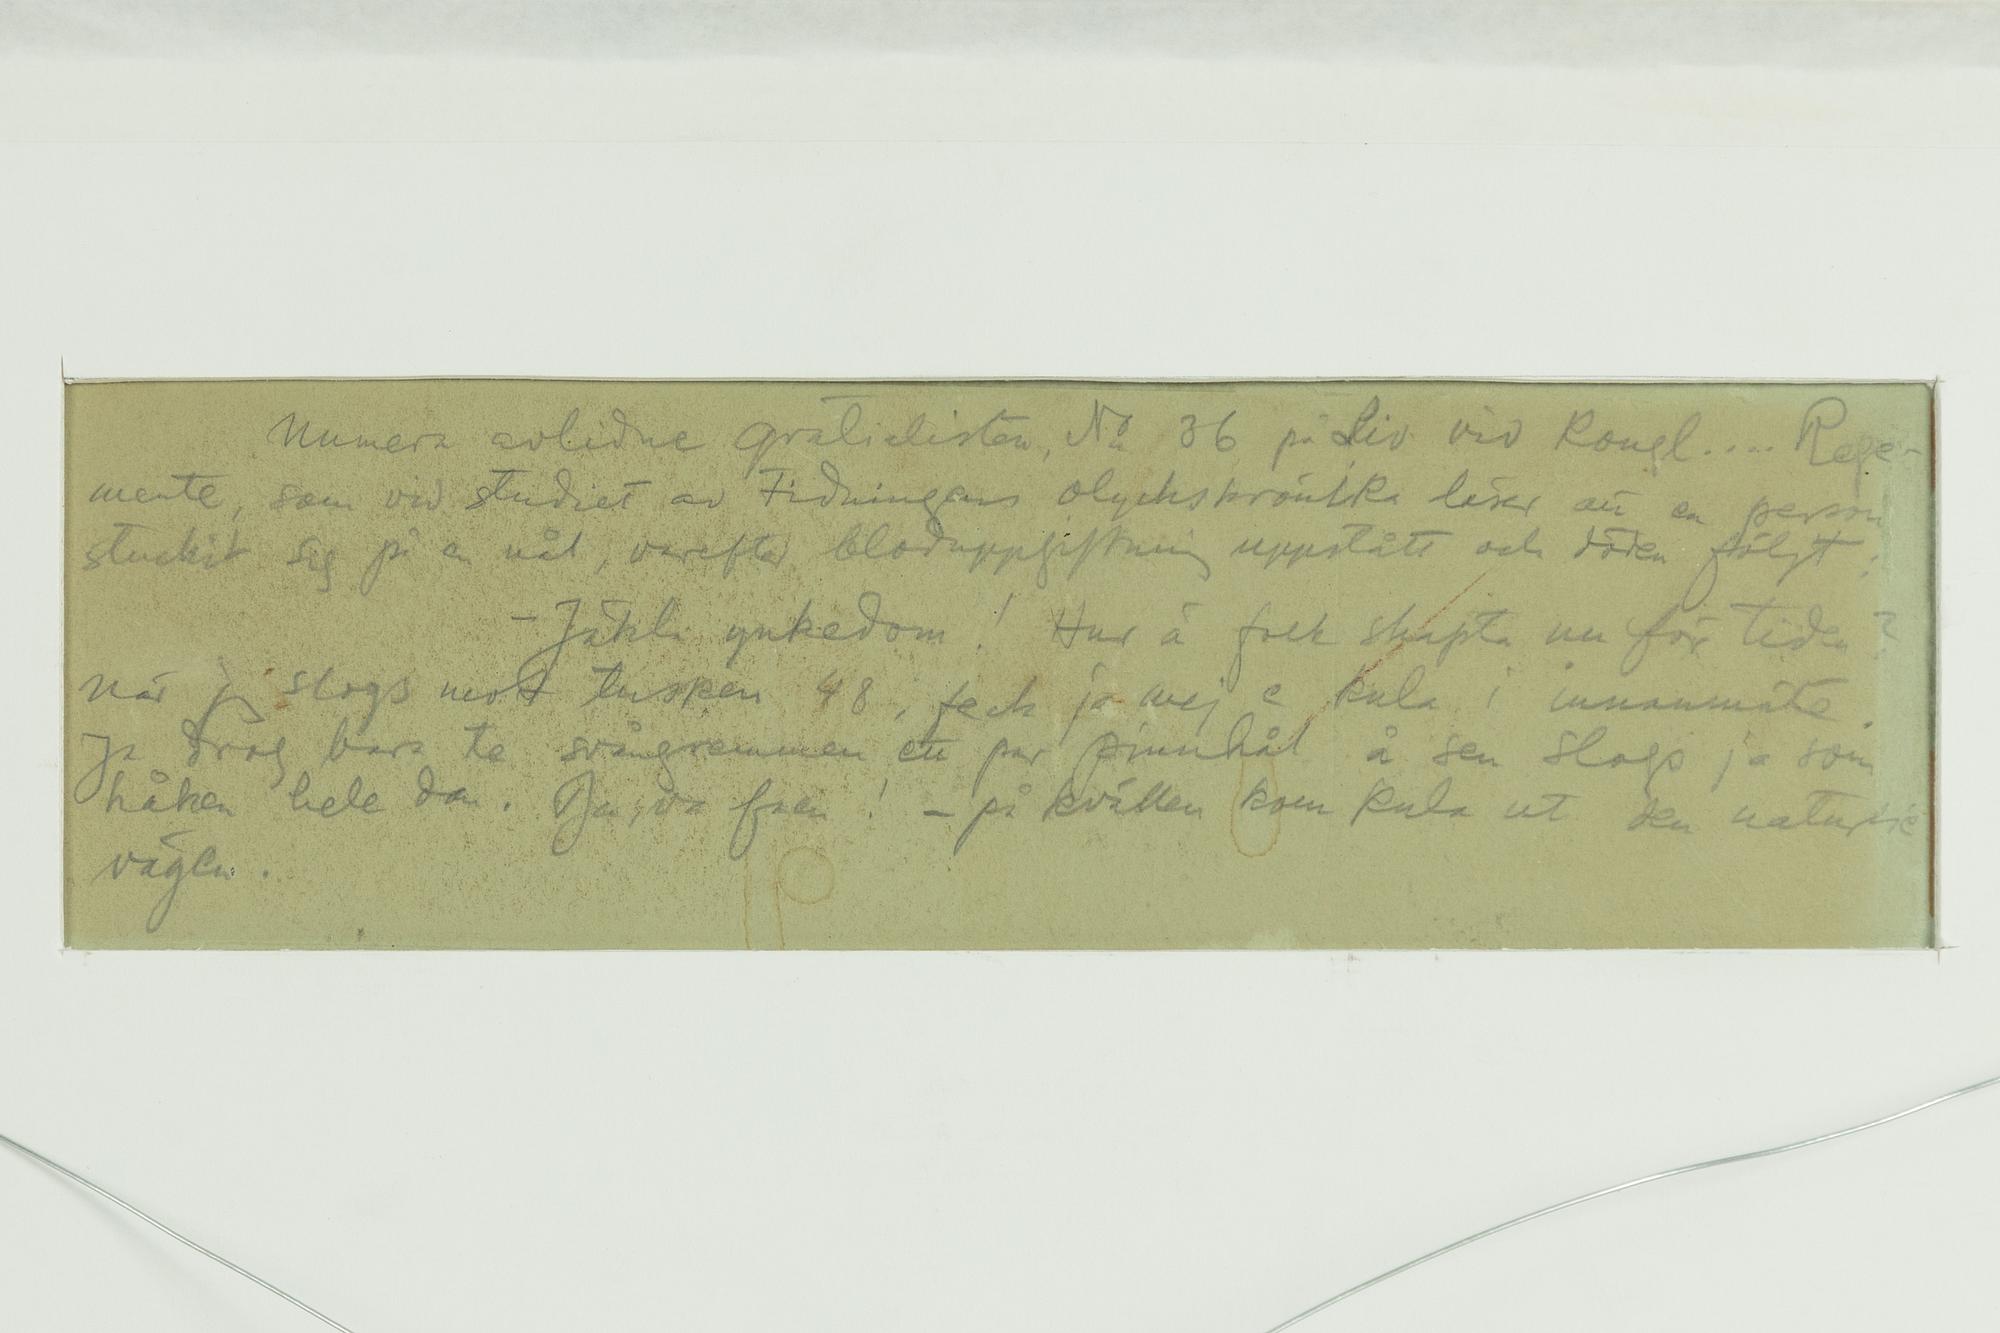 Numera avlidne gratialisten, No 36 på Liv vid Kongl.... Rege-
mente, som vid studiet av Tidningens olyckskrönika läser att en person
stuckit sig på en nål, varefter blodruppgiftning uppstått och döden följt:
- Jäkli ynkedom! Hur ä folk skapta nu för tiden?
När ja slogs mot tysken 48, feck ja mej e kula i innanmäte.
Ja drog bara te svångremmen ett par pinnhål å sen slogs ja som
håken hele dan. Ja, va faen! - på kvällen kom kula ut den naturlie
vägen.